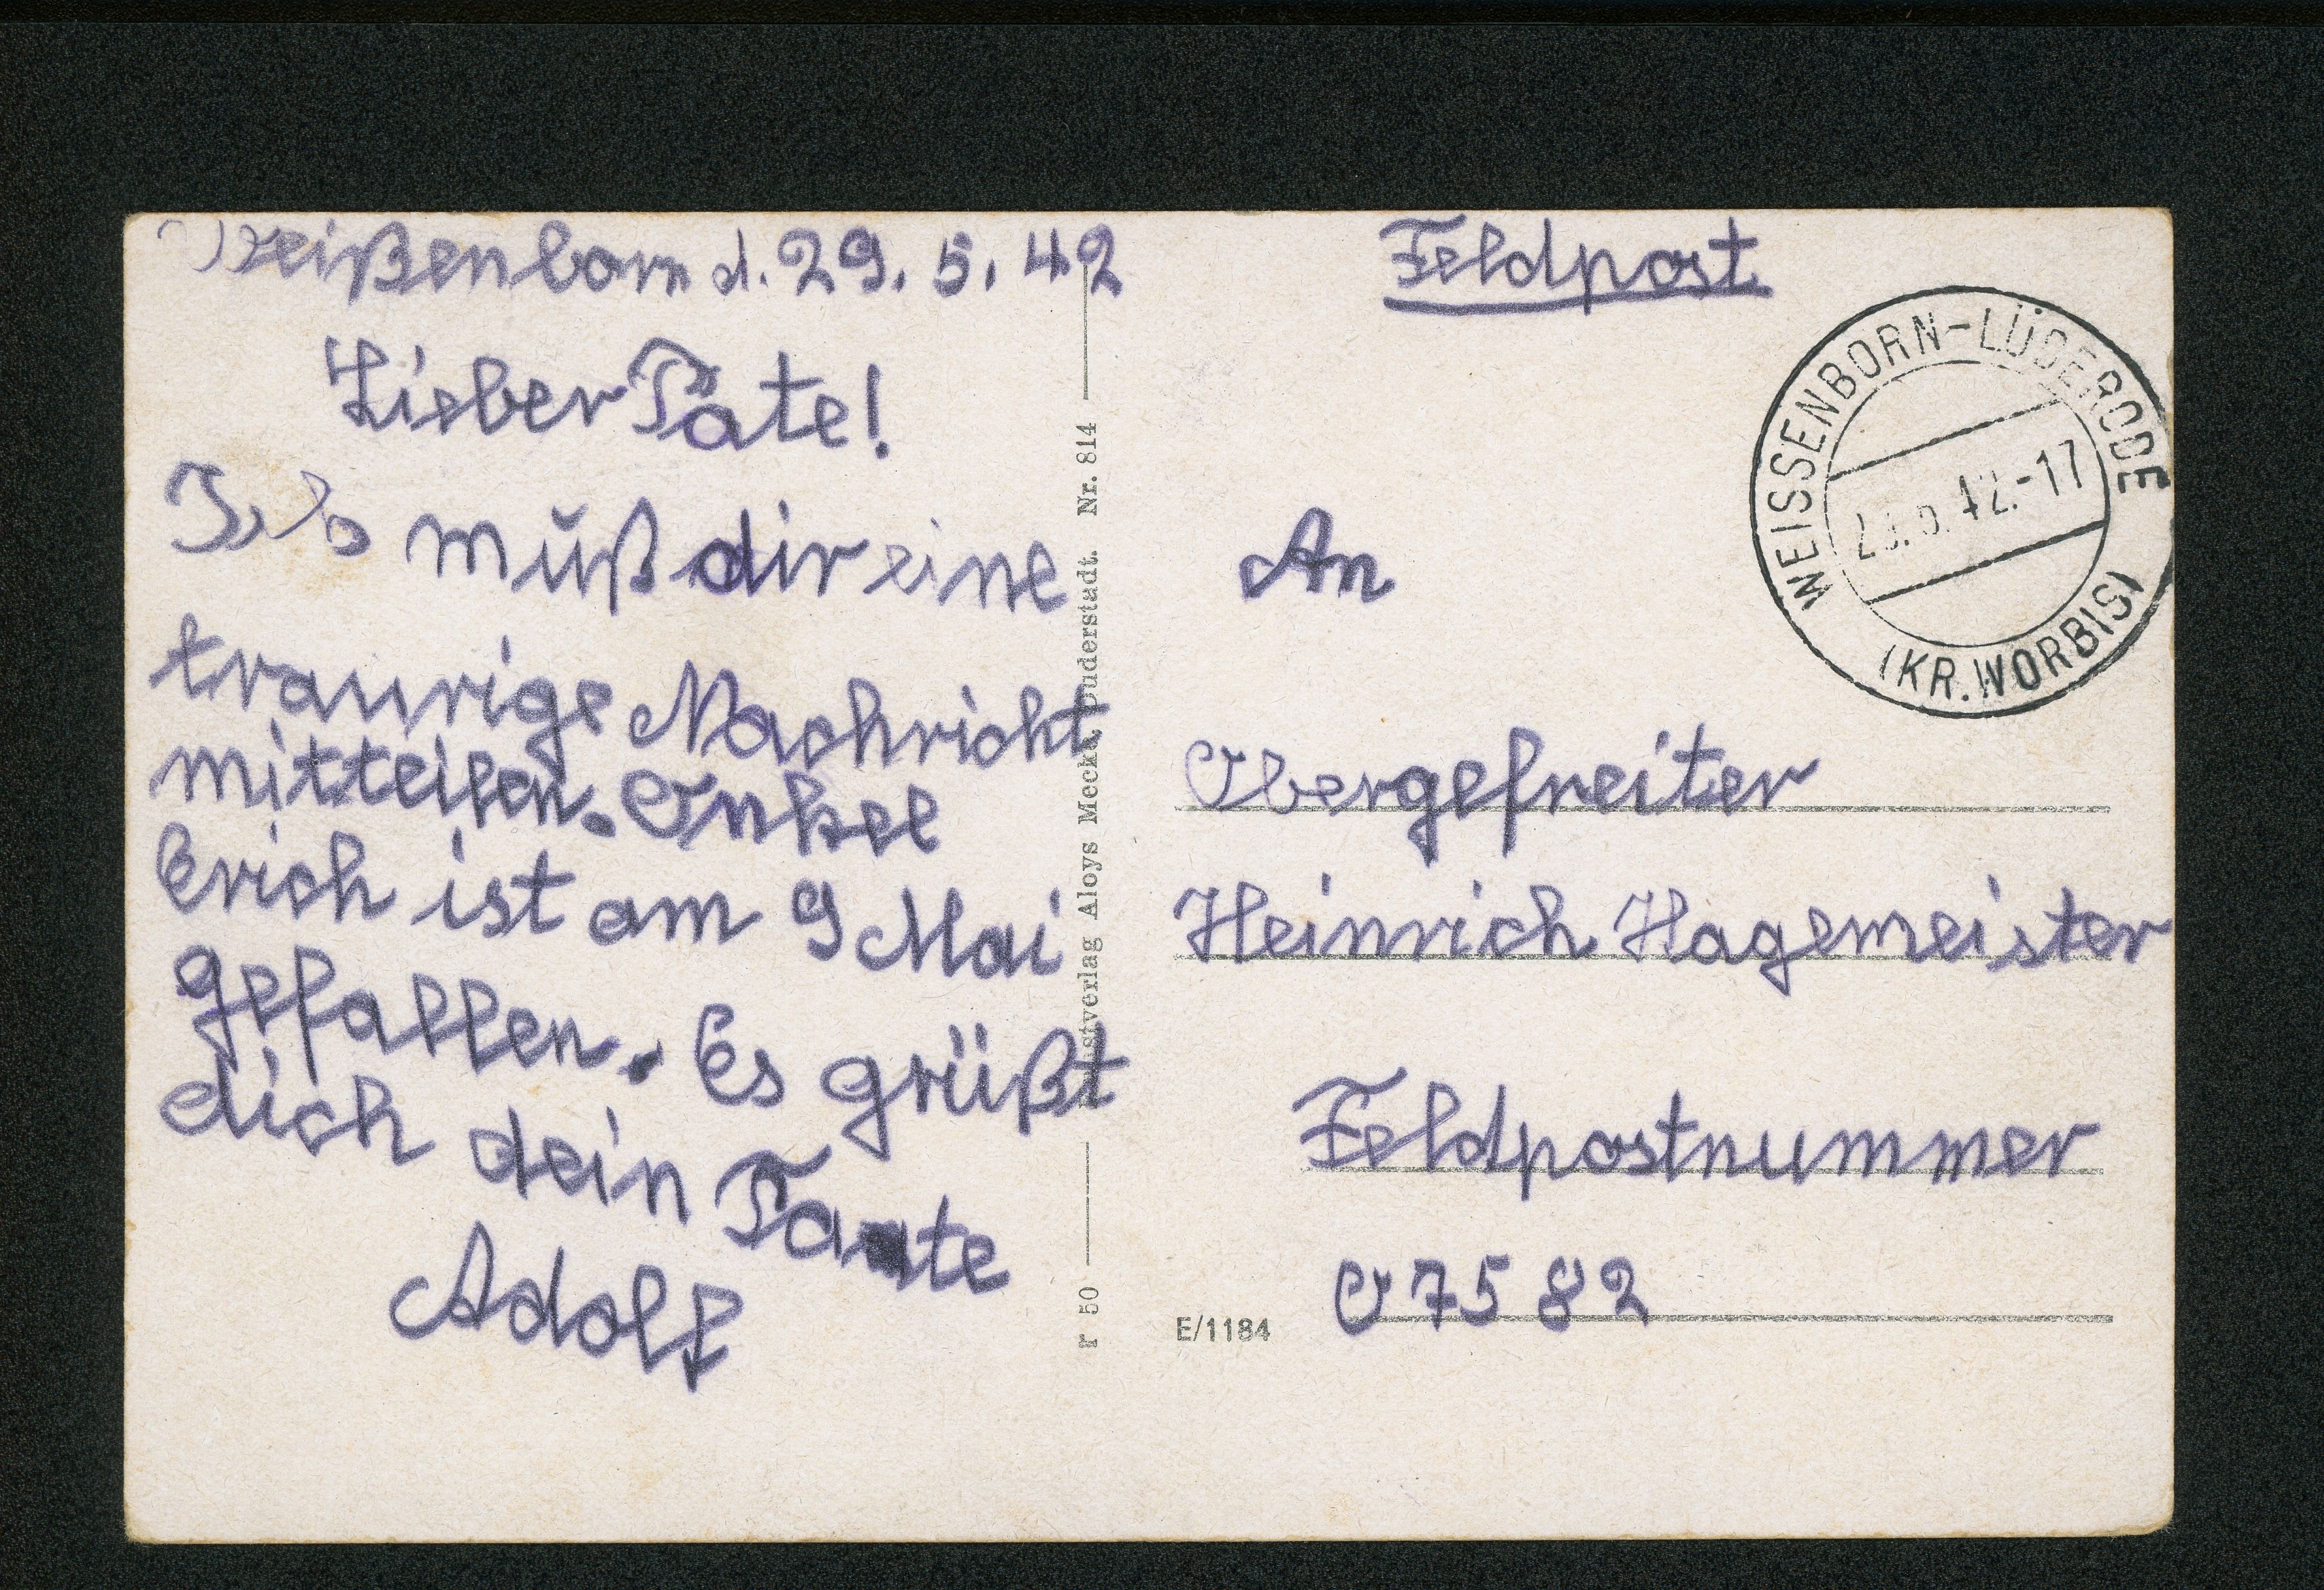 Weißenborn d. 29. 5. 42
Lieber Pate!
Ich muß dir eine
traurige Nachricht
mitteilen. Onkel
Erich ist am 9 Mai
gefallen. Es grüßt
dich dein Paate
Adolf
r 50
Aloys Mecke, Duderstadt. Nr. 814
Feldpost
WEISSENBORN-LÜDERODE
42.-17
(KR. WORBIS)
An
Obergefreiter
Heinrich Hagemeister
Feldpostnummer
07582
E/1184